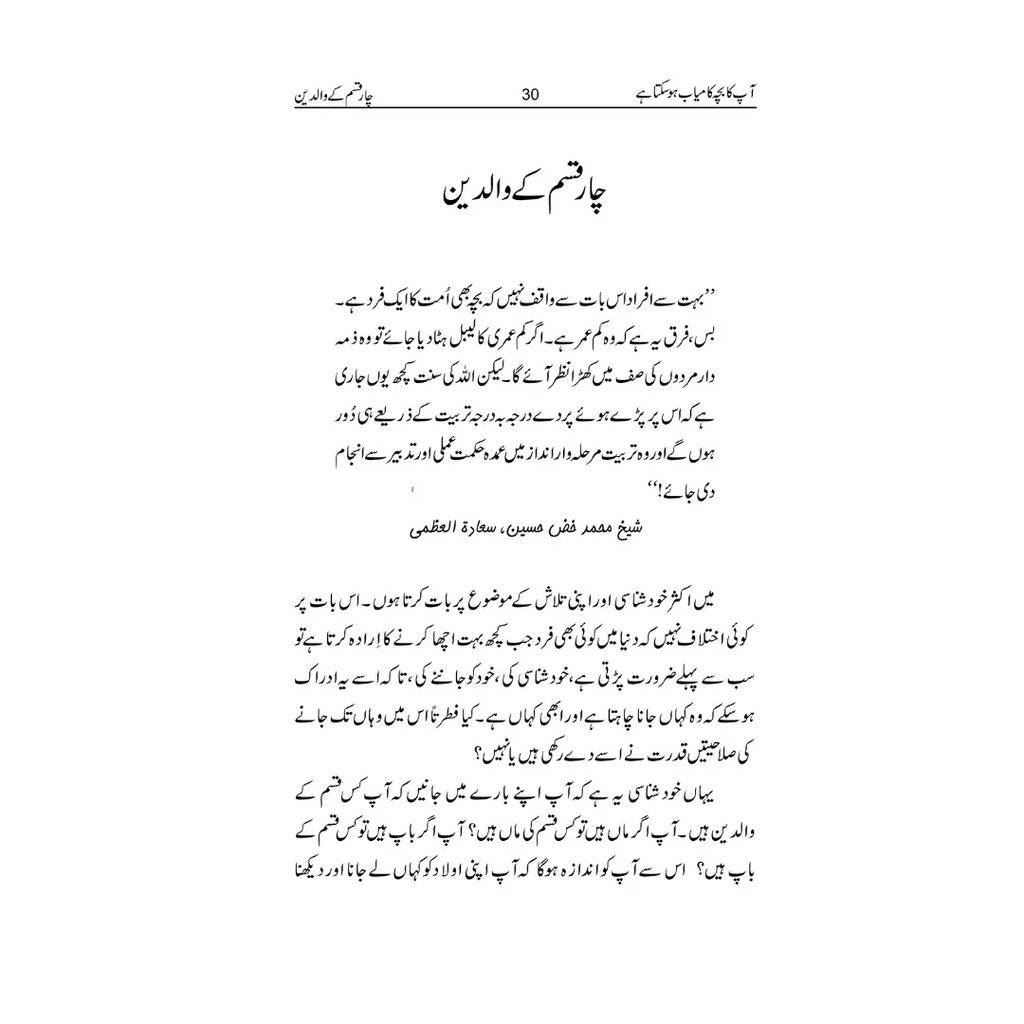 آپ کا بچہ کامیاب ہوسکتا ہے 30 چار قسم کے والدین
چار قسم کے والدین
’’بہت سے افراد اس بات سے واقف نہیں کہ بچہ بھی اُمت کا ایک فرد ہے۔
بس، فرق یہ ہے کہ وہ کم عمر ہے۔ اگر کم عمری کا لیبل ہٹا دیا جائے تو وہ ذمہ
دار مردوں کی صف میں کھڑا نظر آئے گا۔ لیکن اللہ کی سنت کچھ یوں جاری
ہے کہ اس پر پڑے ہوئے پردے درجہ بہ درجہ تربیت کے ذریعے ہی دُور
ہوں گے اور وہ تربیت مرحلہ وار انداز میں عمدہ حکمت عملی اور تدبیر سے انجام
دی جائے!‘‘
شیخ محمد خض حسین، سعادۃ العظمی
میں اکثر خود شناسی اور اپنی تلاش کے موضوع پر بات کرتا ہوں۔ اس بات پر
کوئی اختلاف نہیں کہ دنیا میں کوئی بھی فرد جب کچھ بہت اچھا کرنے کا اِرادہ کرتا ہے تو
سب سے پہلے ضرورت پڑتی ہے، خود شناسی کی، خود کو جاننے کی، تاکہ اسے یہ ادراک
ہوسکے کہ وہ کہاں جانا چاہتا ہے اور ابھی کہاں ہے۔ کیا فطرتاً اس میں وہاں تک جانے
کی صلاحیتیں قدرت نے اسے دے رکھی ہیں یا نہیں؟
یہاں خود شناسی یہ ہے کہ آپ اپنے بارے میں جانیں کہ آپ کس قسم کے
والدین ہیں۔ آپ اگر ماں ہیں تو کس قسم کی ماں ہیں؟ آپ اگر باپ ہیں تو کس قسم کے
باپ ہیں؟ اس سے آپ کو اندازہ ہوگا کہ آپ اپنی اولاد کو کہاں لے جانا اور دیکھنا